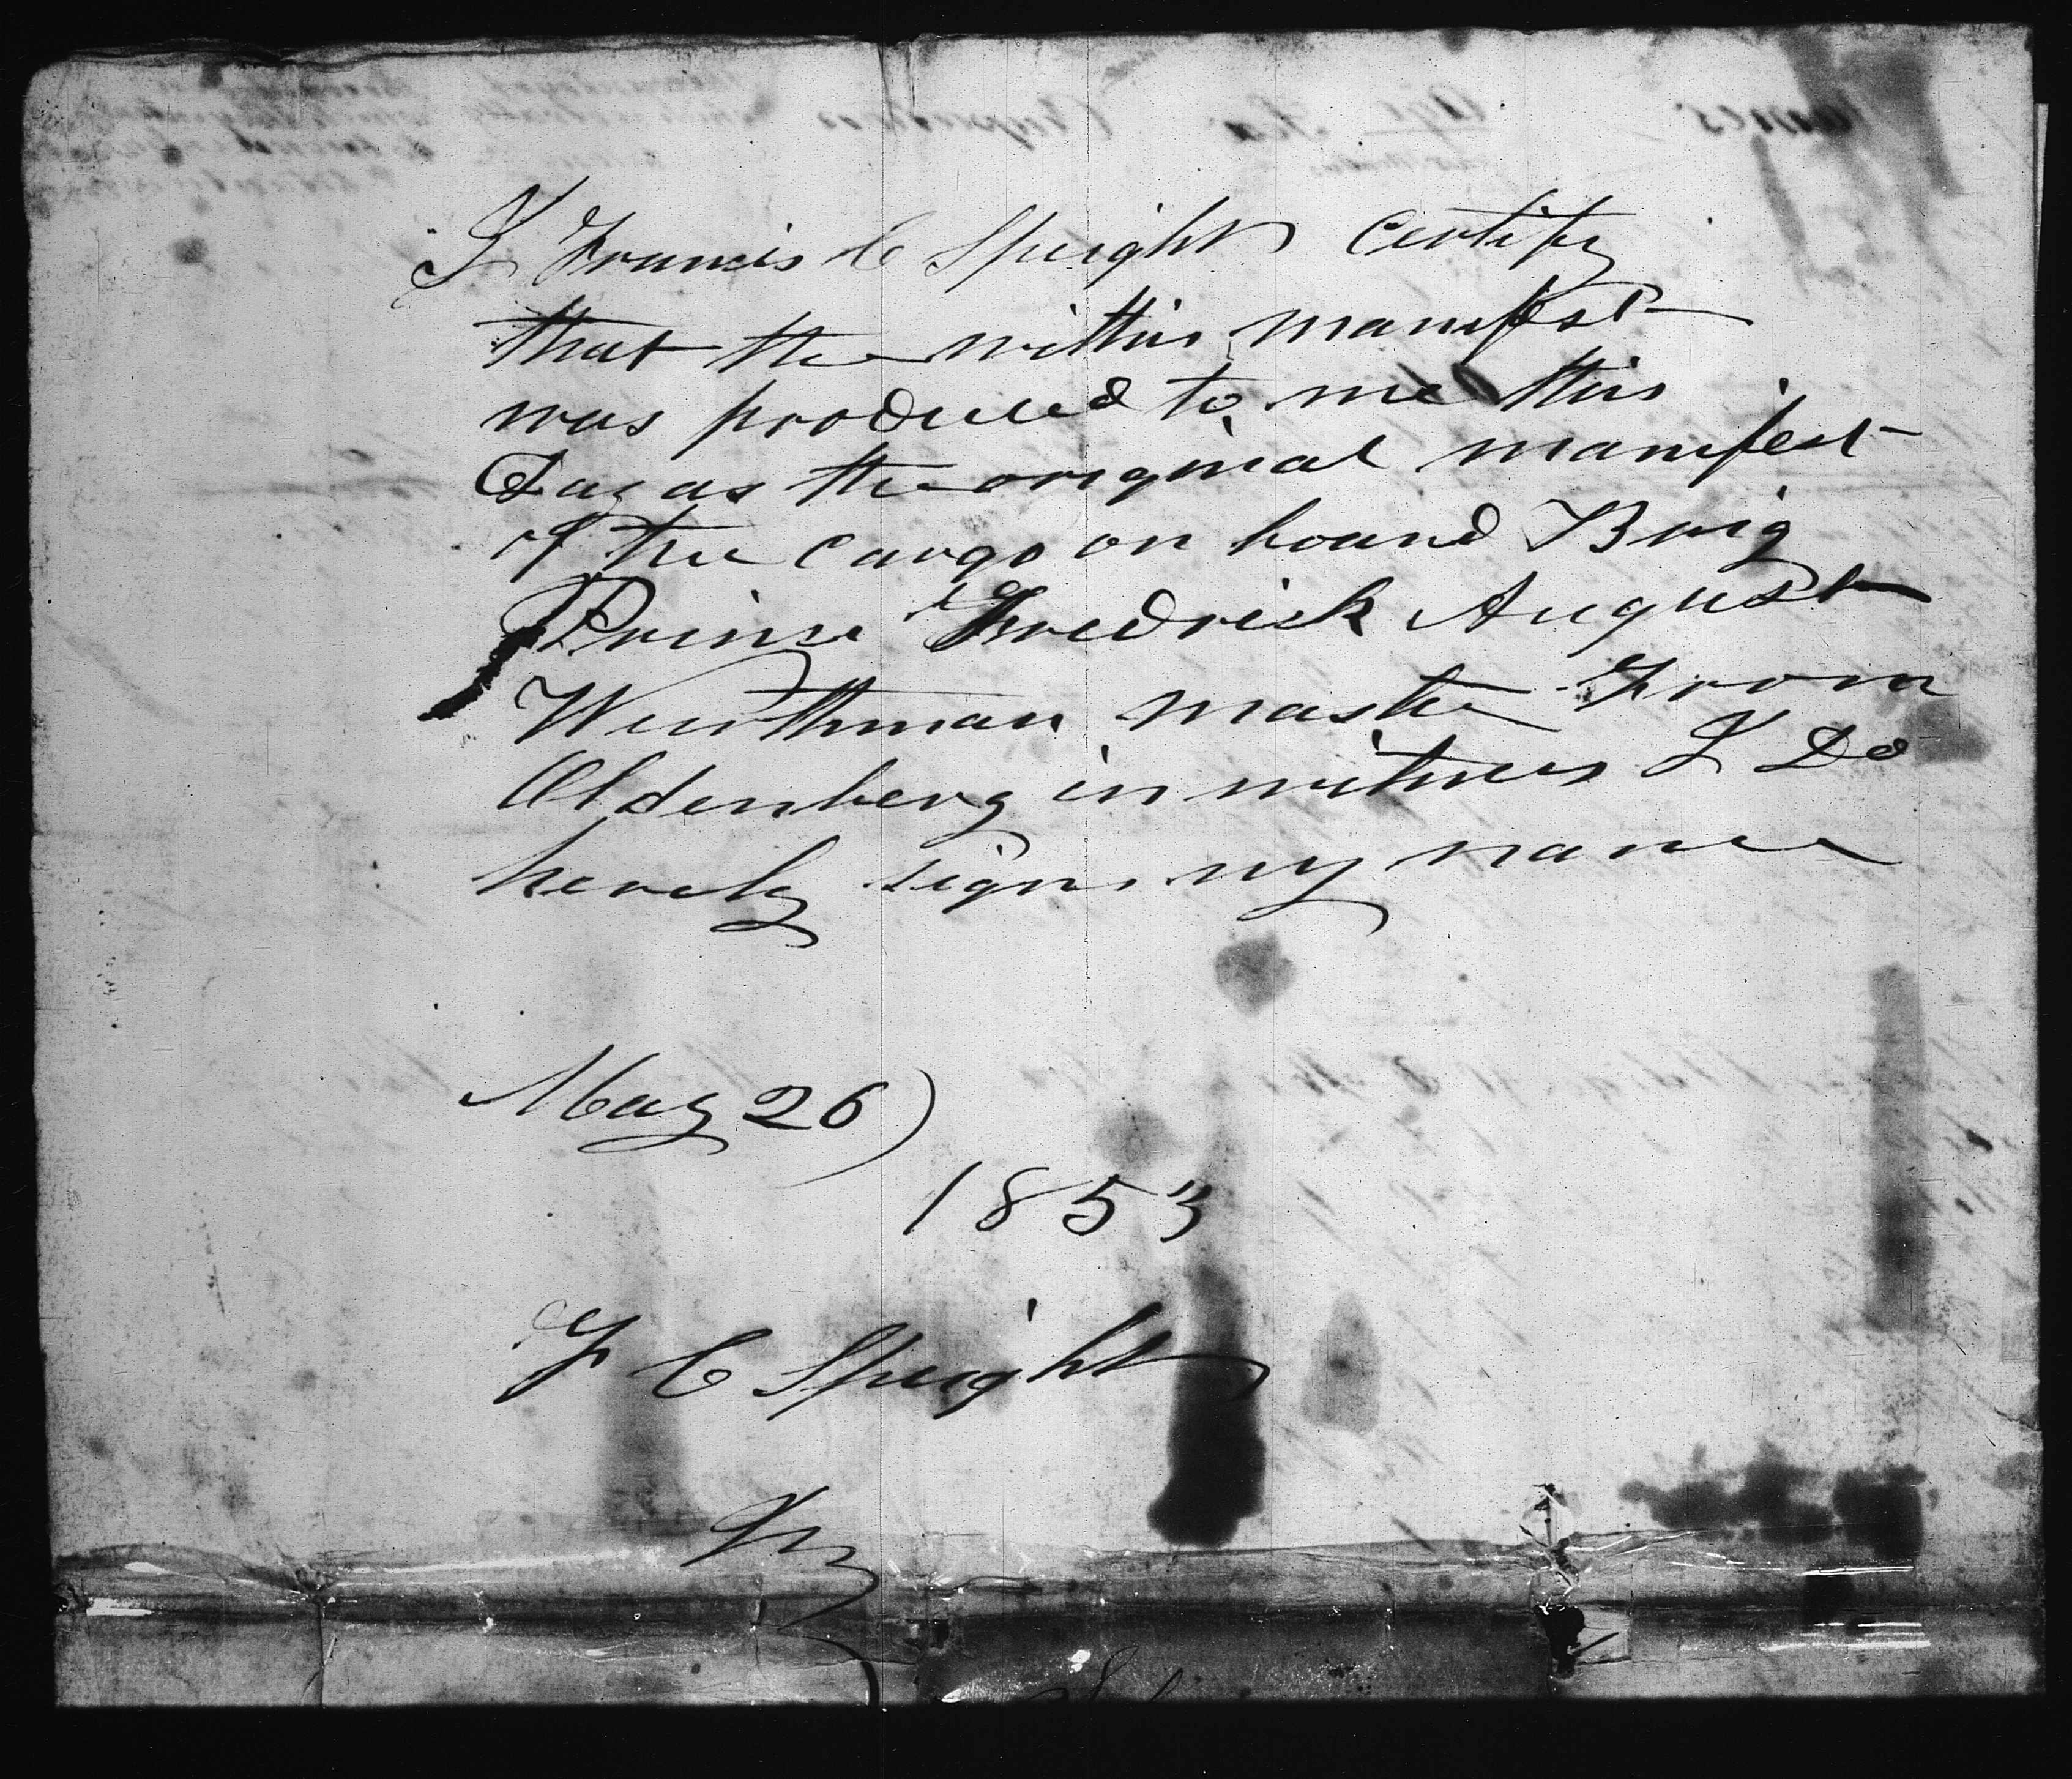 I Francis C Speight Certify
that the within manifest
was produced to me this
Day as the original manifest
of the cargo on board Brig
Prinse Fredrick August
Wenthman master From
Oldenberg in witness I Do
hereby sign my name
May 26)
1853
F C Speight